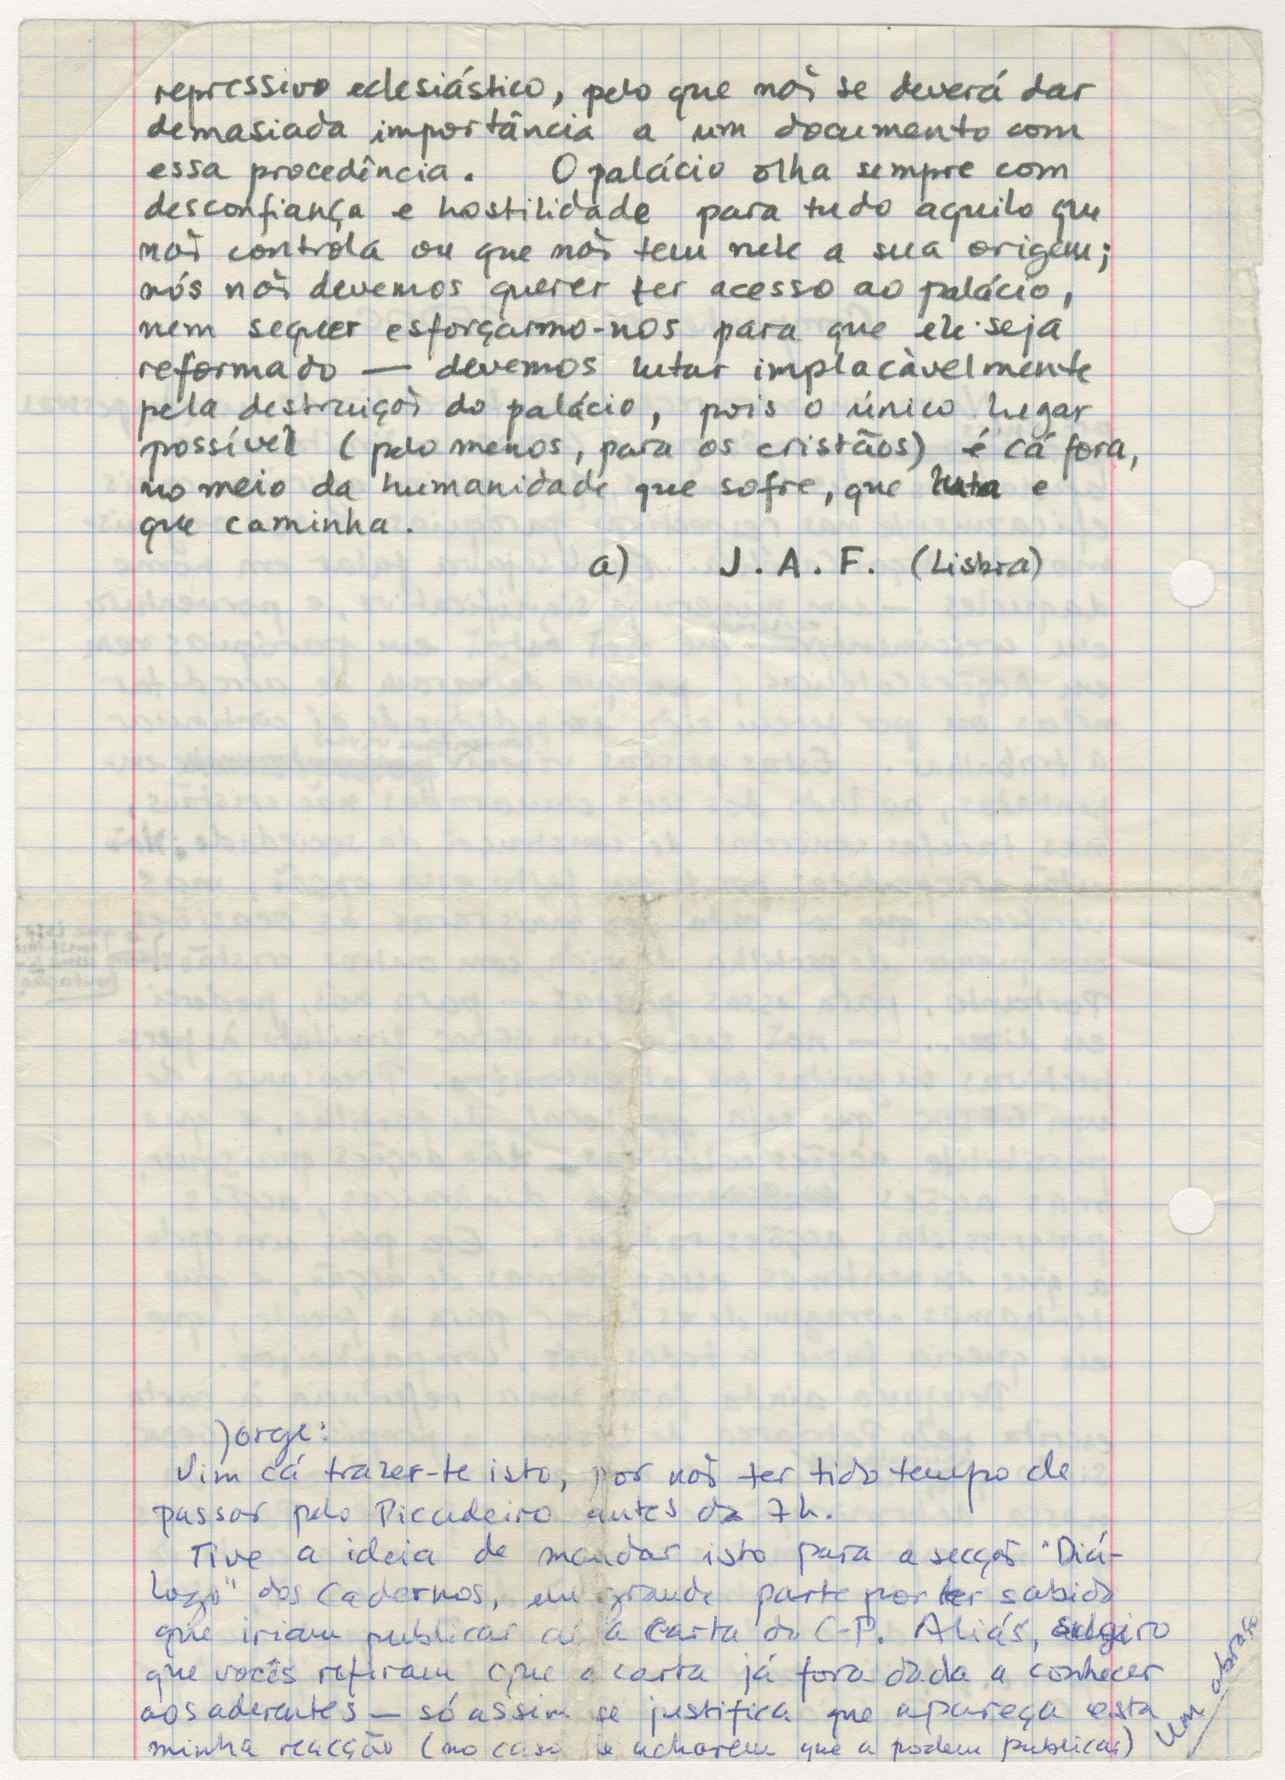 repressivo eclesiástico, pelo que não se deverá dar
demasiada importância a um documento com
essa procedência. O palácio olha sempre com
desconfiança e hostilidade para tudo aquilo que
não controla ou que não tem nele a sua origem;
nós não devemos querer ter acesso ao palácio,
nem sequer esforçarmo-nos para que ele seja
reformado — devemos lutar implacàvelmente
pela destruição do palácio, pois o único lugar
possível (pelo menos, para os cristãos) é cá fora,
no meio da humanidade que sofre, que luta e
que caminha.
a) J. A. F. (Lisboa)
Jorge:
Vim cá trazer-te isto, por não ter tido tempo de
passar pelo Picadeiro antes das 7h.
Tive a ideia de mandar isto para a secção "Diá-
logo" dos Cadernos, em grande parte por ter sabido
que iriam publicar aí a carta do C-P. Aliás, sugiro
que vocês refiram que a carta já fora dada a conhecer
aos aderentes — só assim se justifica que apareça esta
minha reacção (no caso de acharem que a podem publicar)
Um abraço